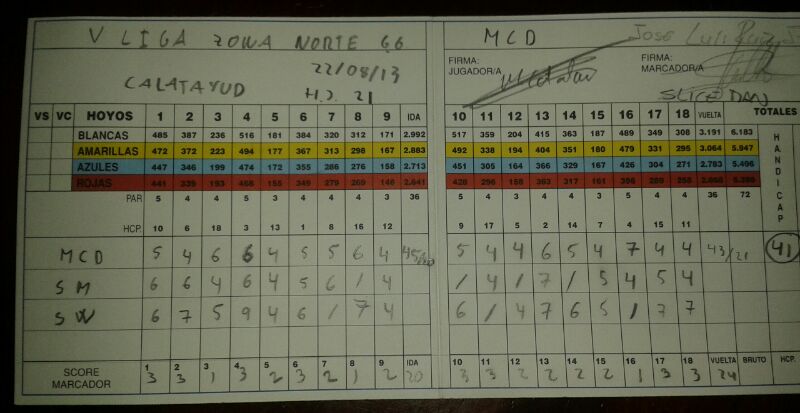 V LIGA ZONA NORTE G6
22/08/13
CALATAYUD H.J. 21
MCD JOSE LUIS
FIRMA: JUGADOR/A
FIRMA: MARCADOR/A
SLICE DAN
VS VC HOYOS 1 2 3 4 5 6 7 8 9 IDA 10 11 12 13 14 15 16 17 18 VUELTA TOTALES
BLANCAS 485 387 236 516 181 384 320 312 171 2.992 517 359 204 415 363 187 489 349 308 3.191 6.183
AMARILLAS 472 372 223 494 177 367 313 298 167 2.883 492 338 194 404 351 180 479 331 295 3.064 5.947
AZULES 447 346 199 474 172 355 286 276 158 2.713 451 305 164 366 329 167 426 304 271 2.783 5.496
ROJAS 441 339 193 458 155 349 279 269 2.641 428 296 158 363 317 161 289 258
HANDICAP
PAR 5 4 4 5 3 4 4 4 3 36 5 4 3 4 4 3 5 4 4 36 72
HCP. 10 6 18 3 13 1 8 16 12 9 17 5 2 14 7 4 15 11
MCD 5 4 6 6 4 5 5 6 4 45 5 4 4 6 5 4 7 4 4 43/21 41
SM 6 6 4 6 4 5 6 / 4 / 4 / 7 / 5 4 5 4
SW 6 7 5 9 4 6 / 7 4 6 / 4 7 6 5 / 7 7
SCORE MARCADOR 1 2 3 4 5 6 7 8 9 IDA 10 11 12 13 14 15 16 17 18 VUELTA BRUTO HCP.
3 3 1 3 2 3 2 1 2 20 3 3 2 2 2 2 1 3 3 24